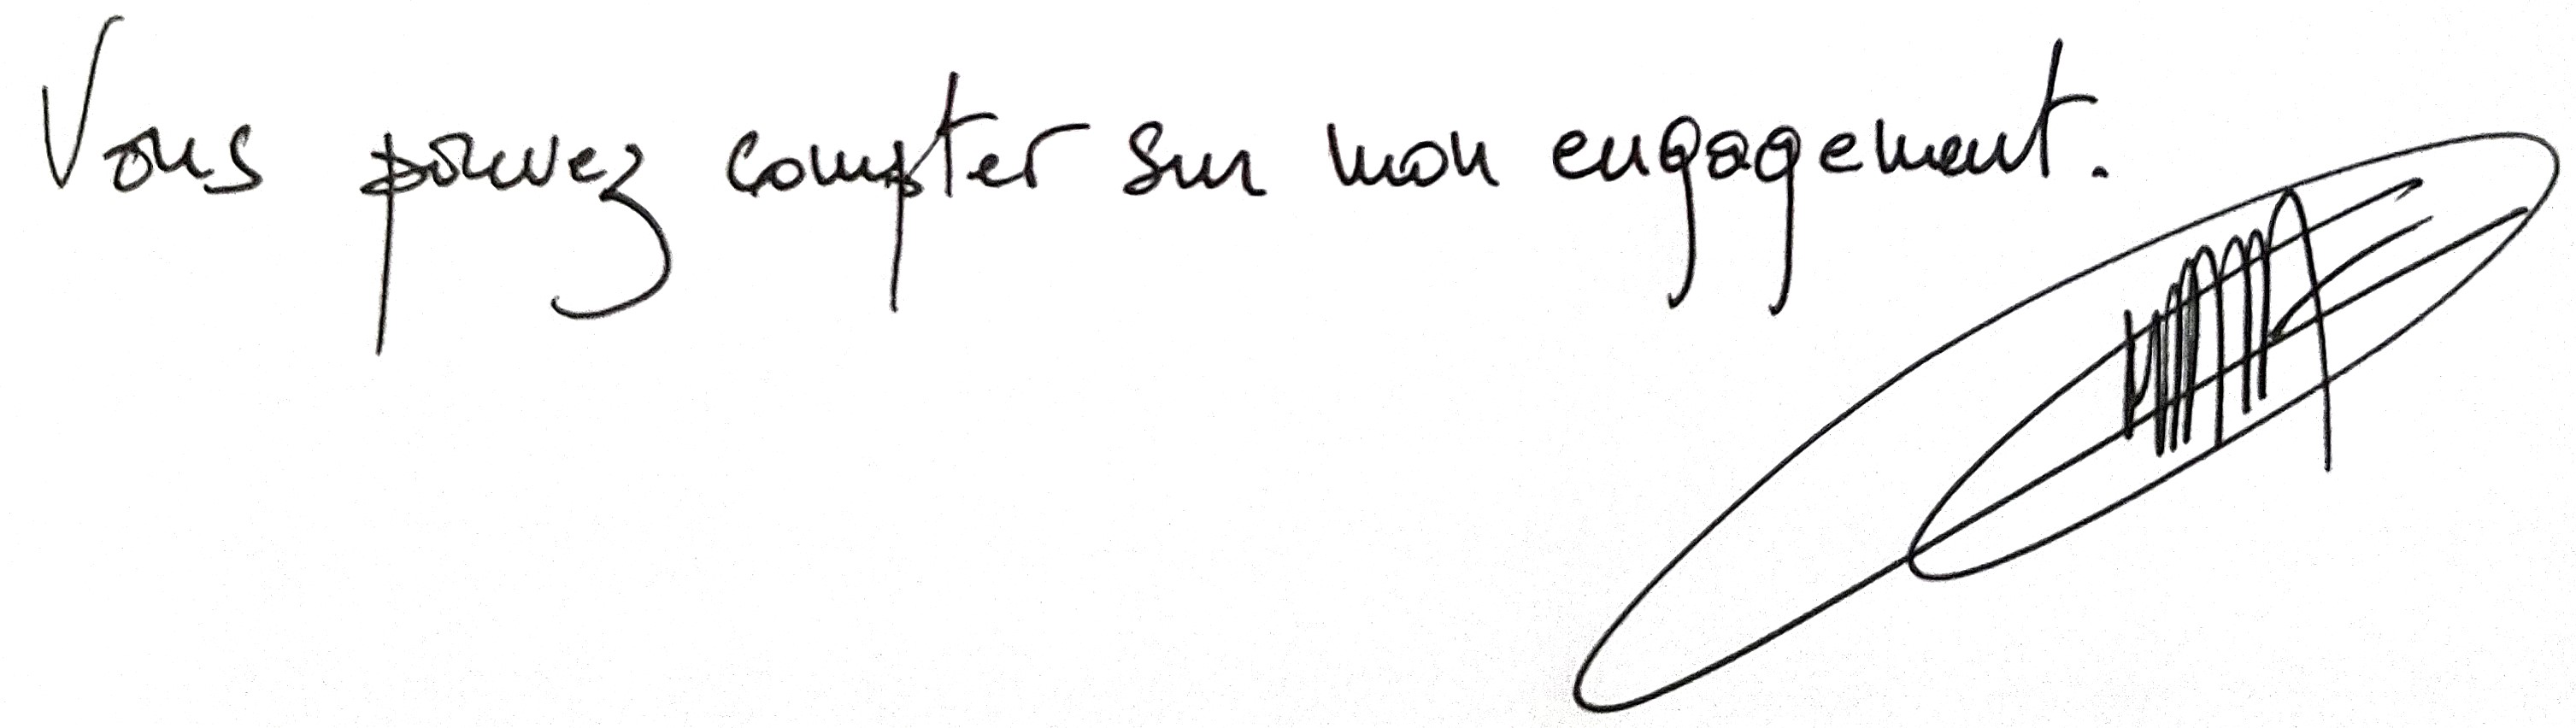 Vous pouvez compter sur mon engagement.